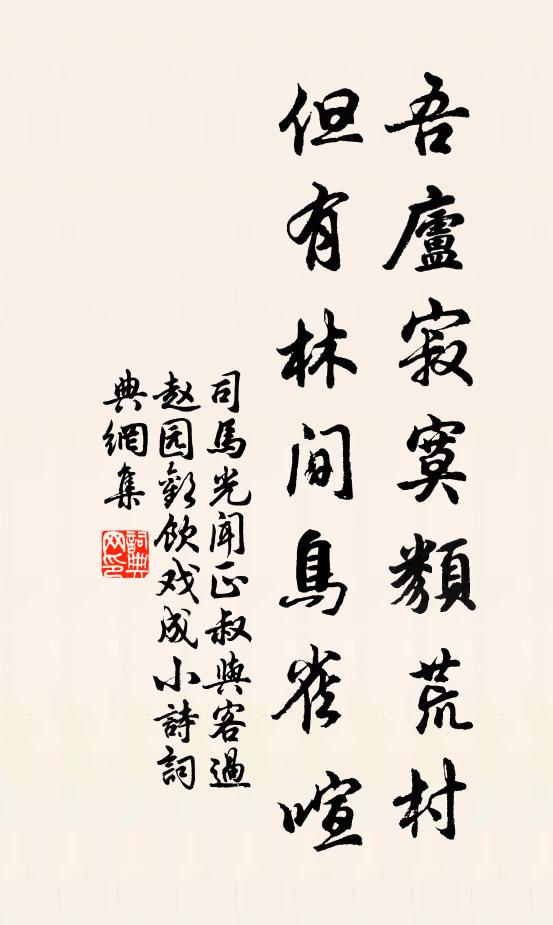 吾廬寂寞類荒村
但有林間鳥雀喧
司馬光聞正叔與客過
赵园歡飲戏成小詩詞
典網集
詞典
网印